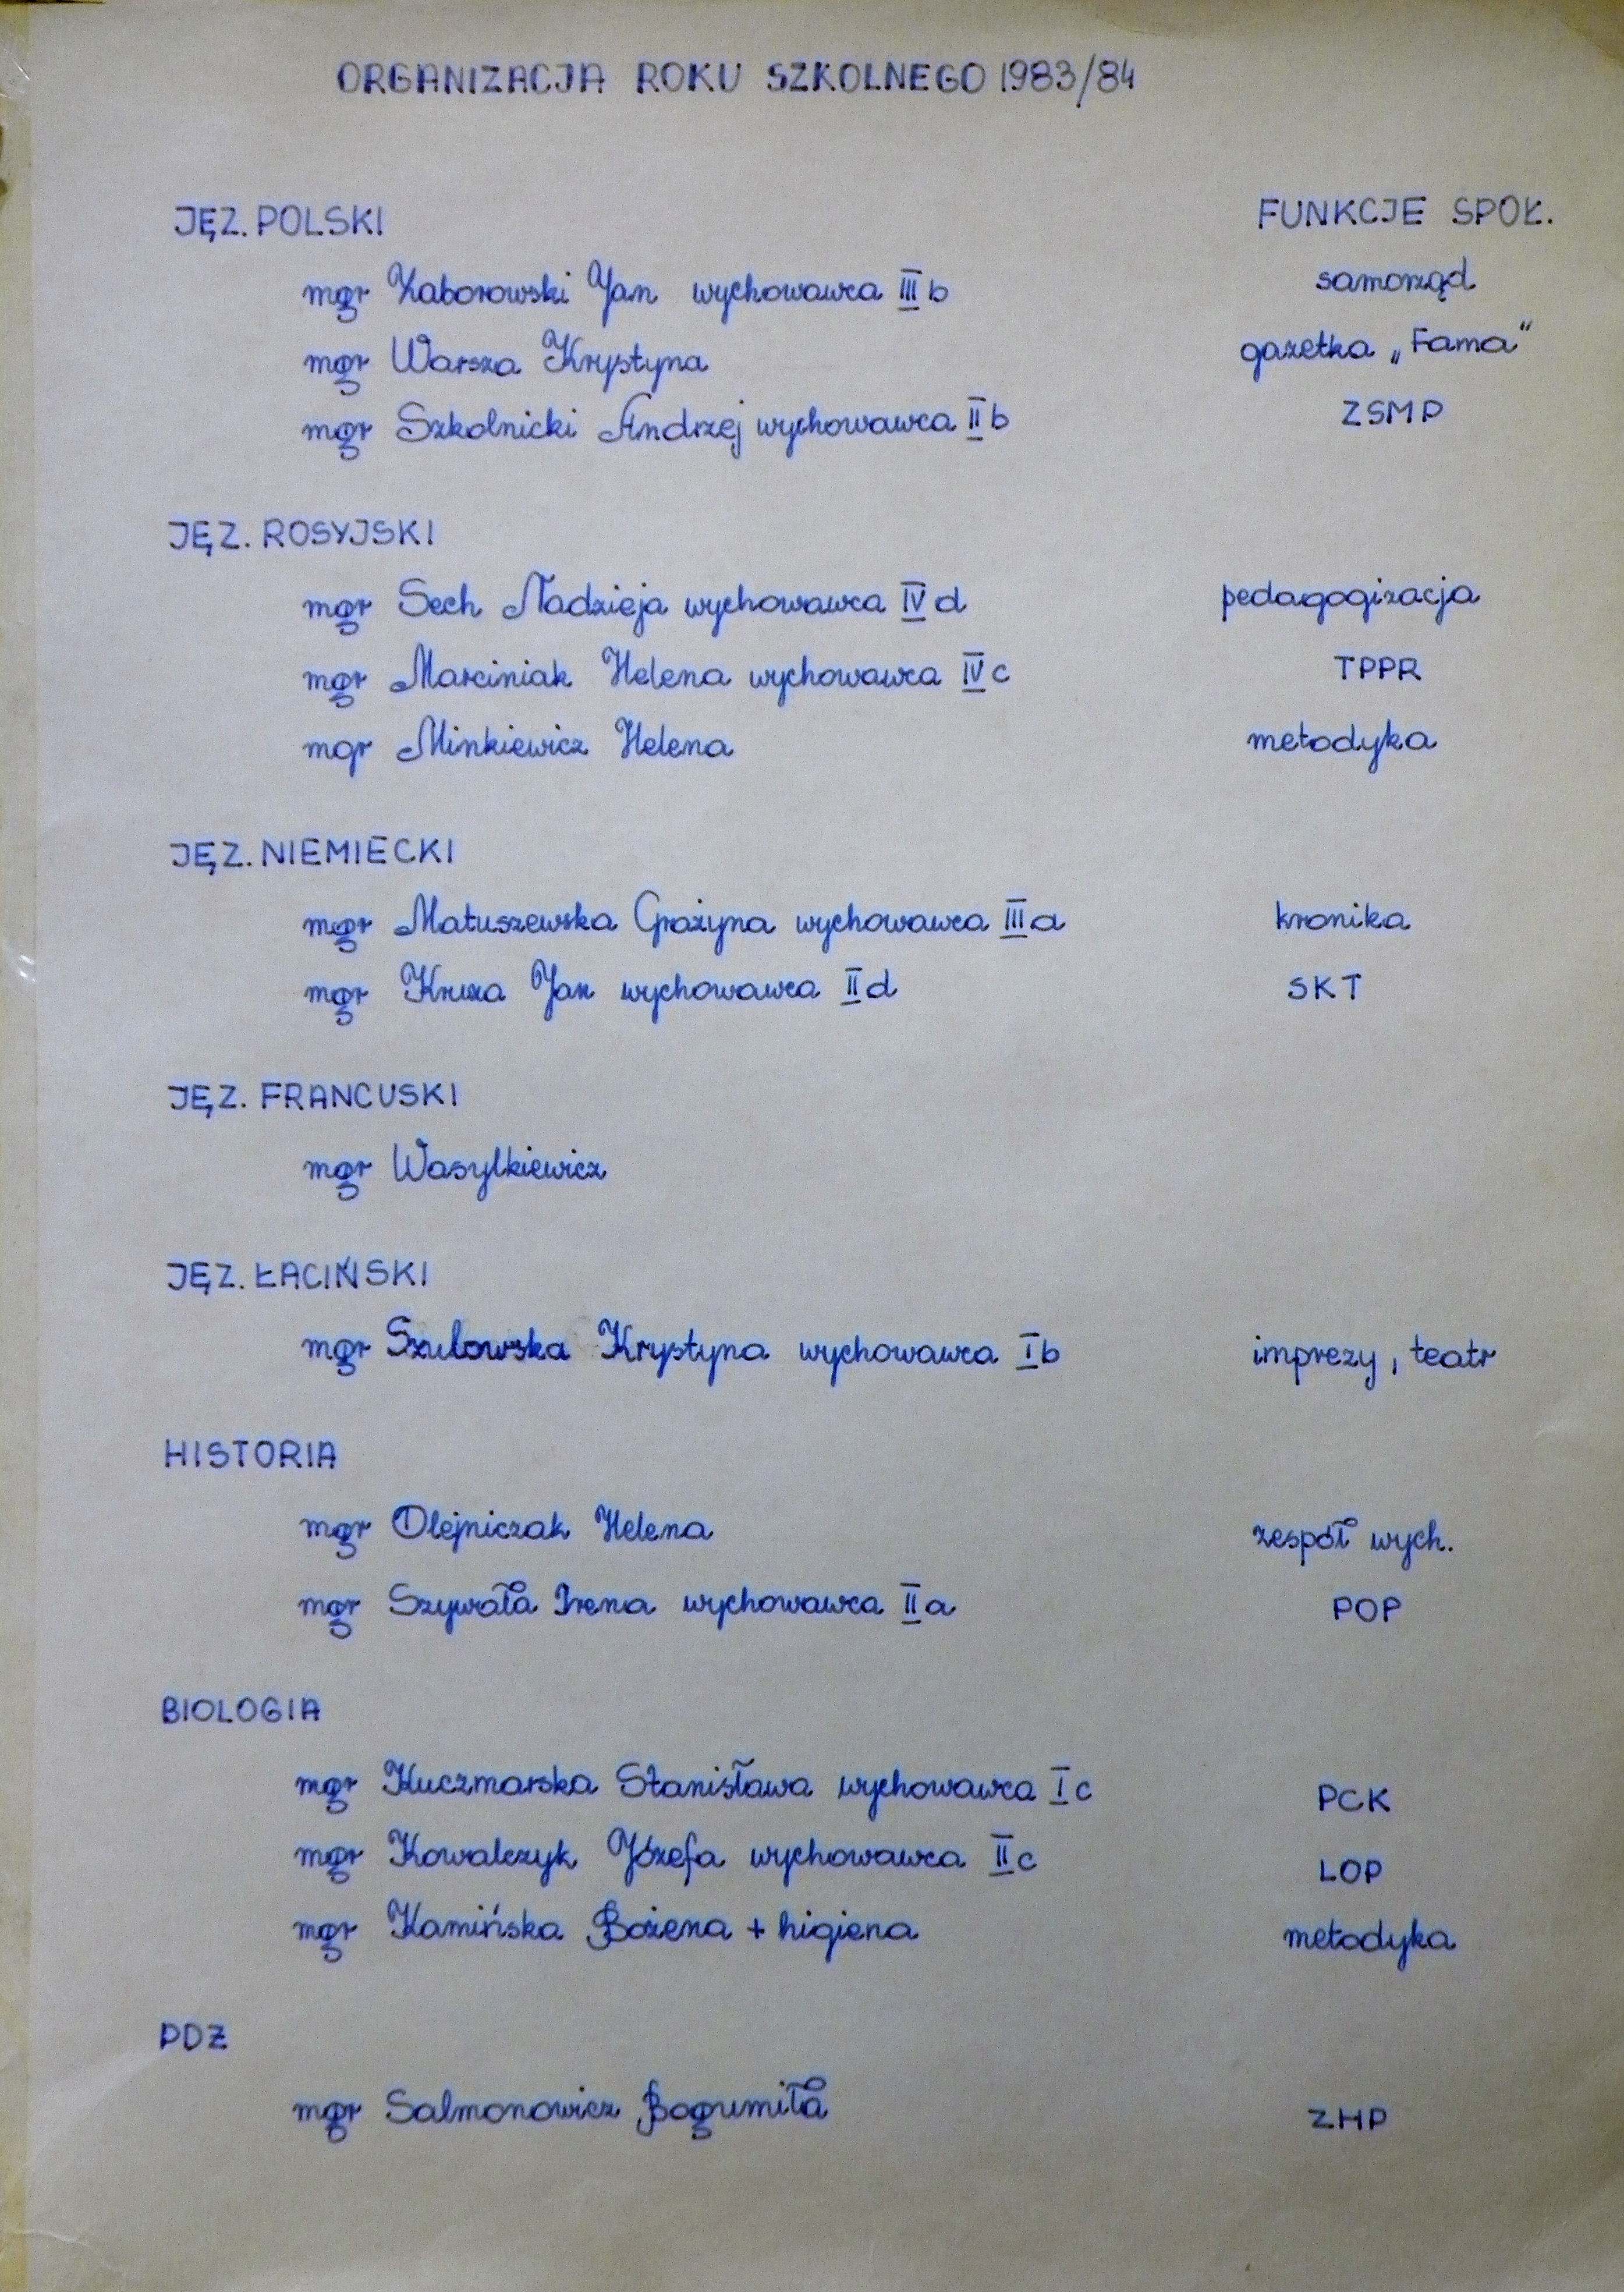 ORGANIZACJA ROKU SZKOLNEGO 1983/84
JĘZ. POLSKI FUNKCJE SPOŁ.
mgr Zaborowski Jan wychowawca III b samorząd
mgr Warsza Krystyna gazetka „Fama"
mgr Szkolnicki Andrzej wychowawca II b ZSMP
JĘZ. ROSYJSKI
mgr Sech Nadzieja wychowawca IV d pedagogizacja
mgr Marciniak Helena wychowawca IV c TPPR
mgr Minkiewicz Helena metodyka
JĘZ. NIEMIECKI
mgr Matuszewska Grażyna wychowawca III a kronika
mgr Kruza Jan wychowawca II d SKT
JĘZ. FRANCUSKI
mgr Wasylkiewicz
JĘZ. ŁACIŃSKI
mgr Szulowska Krystyna wychowawca I b imprezy, teatr
HISTORIA
mgr Olejniczak Helena zespół wych.
mgr Szywała Irena wychowawca II a POP
BIOLOGIA
mgr Kuczmarska Stanisława wychowawca I c PCK
mgr Kowalczyk Józefa wychowawca II c LOP
mgr Kamińska Bożena + higiena metodyka
PDZ
mgr Salmonowicz Bogumiła ZHP